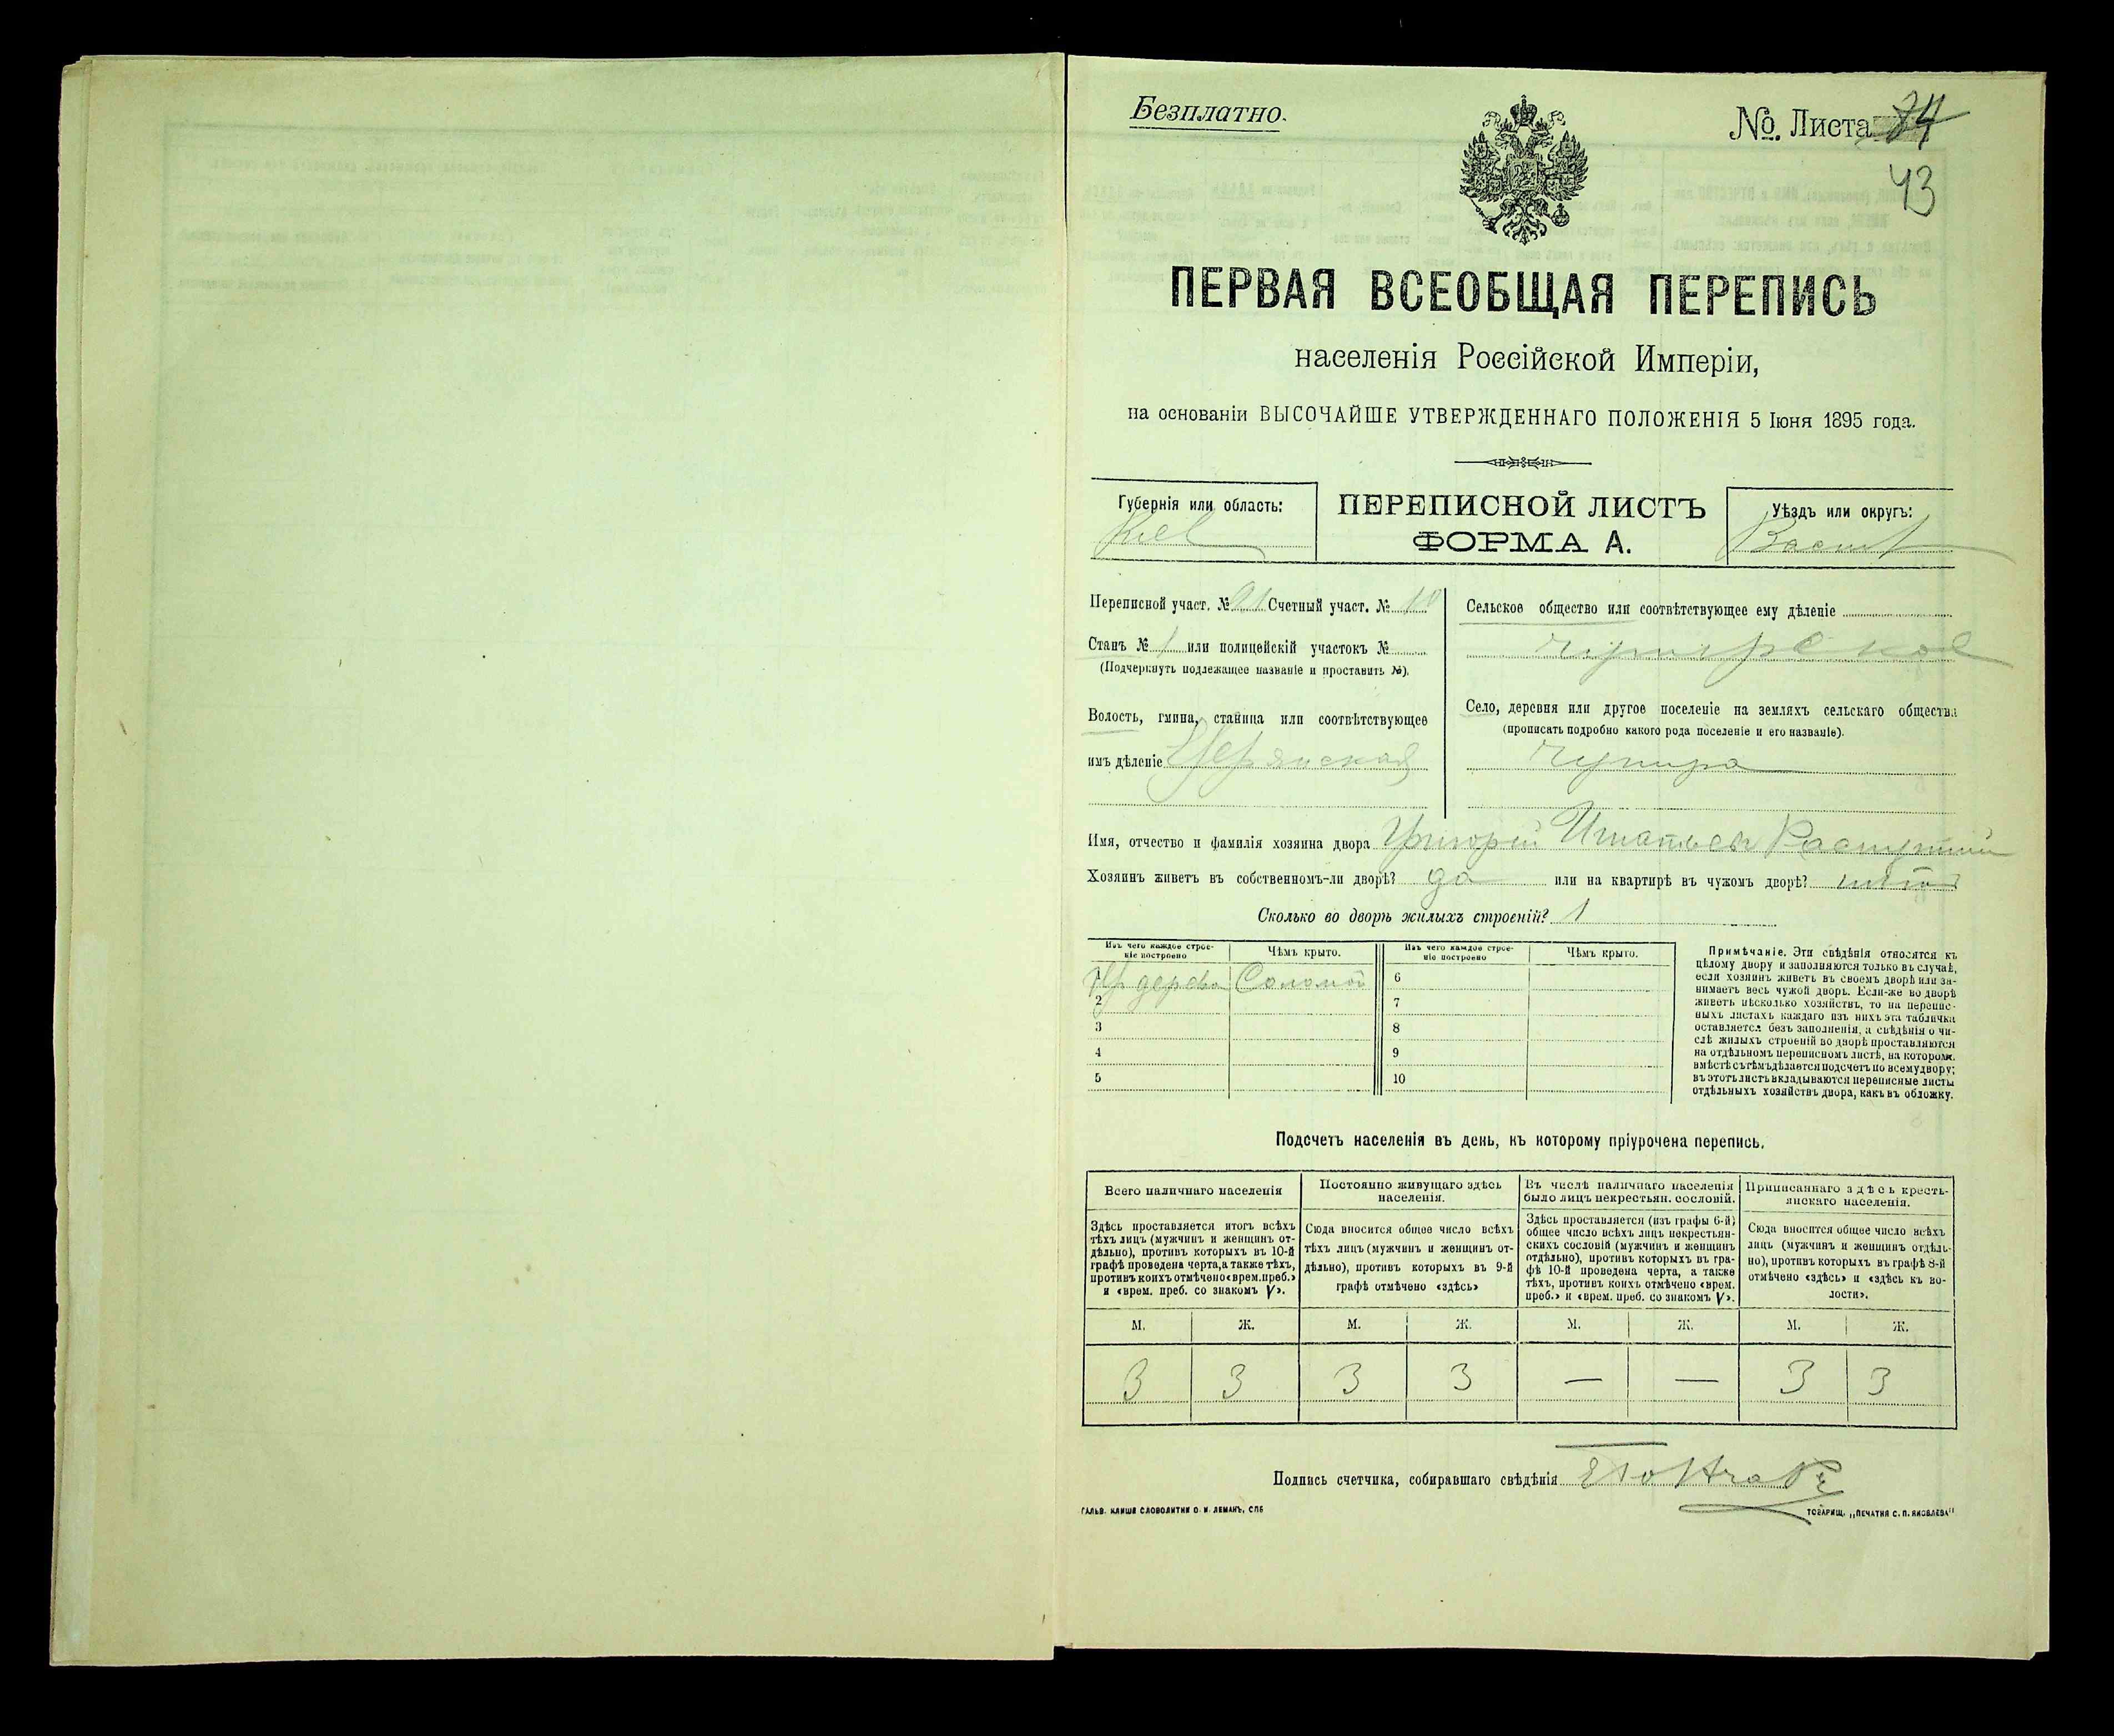 Безплатно.
№. Листа 74
43
ПЕРВАЯ ВСЕОБЩАЯ ПЕРЕПИСЬ
населенія Россійской Имперіи,
на основаніи ВЫСОЧАЙШЕ УТВЕРЖДЕННАГО ПОЛОЖЕНІЯ 5 Іюня 1895 года.
Губернія или область:
Кіев
ПЕРЕПИСНОЙ ЛИСТЪ
ФОРМА А.
Уѣздъ или округъ:
Васил
Переписной участ. № Счетный участ. № 10
Станъ № 1 или полицейскій участокъ №
(Подчеркнуть подлежащее названіе и проставить №).
Волость, гмина, станица или соотвѣтствующее
имъ дѣленіе
Сельское общество или соотвѣтствующее ему дѣленіе
Чупирское
Село, деревня или другое поселеніе на земляхъ сельскаго общества
(прописать подробно какого рода поселеніе и его названіе).
Чупира
Имя, отчество и фамилія хозяина двора Григорій Игнатьев
Хозяинъ живетъ въ собственномъ-ли дворѣ? да или на квартирѣ въ чужомъ дворѣ?
Сколько во дворѣ жилыхъ строеній? 1
Изъ чего каждое строе-
ніе построено
Чѣмъ крыто.
Изъ чего каждое строе-
ніе построено
Чѣмъ крыто.
дерева Соломой 6
2 7
3 8
4 9
5 10
Примѣчаніе. Эти свѣдѣнія относятся къ
цѣлому двору и заполняются только въ случаѣ,
если хозяинъ живетъ въ своемъ дворѣ или за-
нимаетъ весь чужой дворъ. Если-же во дворѣ
живетъ нѣсколько хозяйствъ, то на перепис-
ныхъ листахъ каждаго изъ нихъ эта табличка
оставляется безъ заполненія, а свѣдѣнія о чи-
слѣ жилыхъ строеній во дворѣ проставляются
на отдѣльномъ переписномъ листѣ, на котором.
вмѣстѣ съ тѣмъ дѣлается подсчетъ по всему двору;
въ этотъ листъ вкладываются переписные листы
отдѣльныхъ хозяйствъ двора, какъ въ обложку.
Подсчетъ населенія въ день, къ которому пріурочена перепись.
Всего наличнаго населенія
Здѣсь проставляется итогъ всѣхъ
тѣхъ лицъ (мужчинъ и женщинъ от-
дѣльно), противъ которыхъ въ 10-й
графѣ проведена черта, а также тѣхъ,
противъ коихъ отмѣчено «врем. преб.»
и «врем. преб. со знакомъ V».
Постоянно живущаго здѣсь
населенія.
Сюда вносится общее число всѣхъ
тѣхъ лицъ (мужчинъ и женщинъ от-
дѣльно), противъ которыхъ въ 9-й
графѣ отмѣчено «здѣсь»
Въ числѣ наличнаго населенія
было лицъ некрестьян. сословій.
Здѣсь проставляется (изъ графы 6-й)
общее число всѣхъ лицъ некрестьян-
скихъ сословій (мужчинъ и женщинъ
отдѣльно), противъ которыхъ въ гра-
фѣ 10-й проведена черта, а также
тѣхъ, противъ коихъ отмѣчено «врем.
преб.» и «врем. преб. со знакомъ V».
Приписаннаго здѣсь кресть-
янскаго населенія.
Сюда вносится общее число всѣхъ
лицъ (мужчинъ и женщинъ отдѣль-
но), противъ которыхъ въ графѣ 8-й
отмѣчено «здѣсь» и «здѣсь къ во-
лости».
М. Ж. М. Ж. М. Ж. М. Ж.
3 3 3 3 — — 3 3
Подпись счетчика, собиравшаго свѣдѣнія
ГАЛЬВ. КЛИШЕ СЛОВОЛИТНИ О. И. ЛЕМАНЪ, СПБ
ТОВАРИЩ. „ПЕЧАТНЯ С. П. ЯКОВЛЕВА"